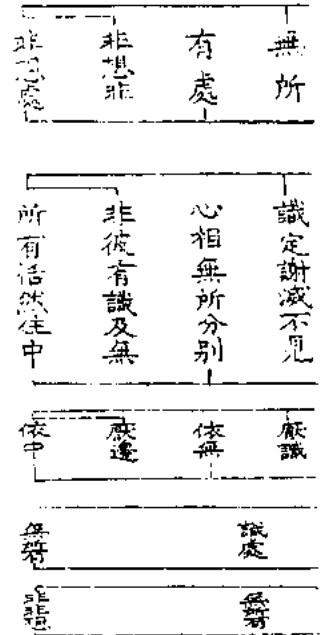 無所
有處
非想非
非想處
識定謝滅不見
心相無所分別
非彼有識及無
所有恬然住中
厭識
依無
厭邊
依中
識處
無
無
非想